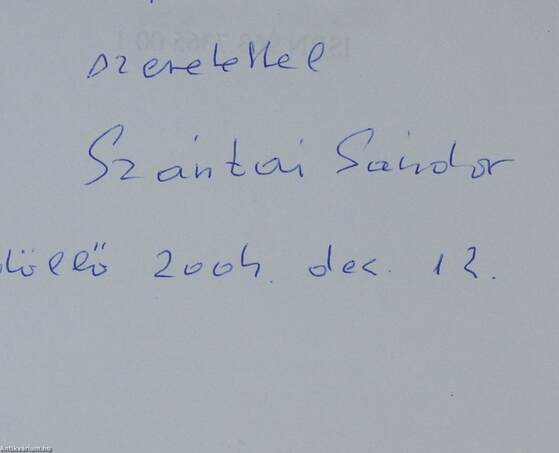 szeretettel
Szántai Sándor
döllő 2004. dec. 12.
Antikvarium.hu